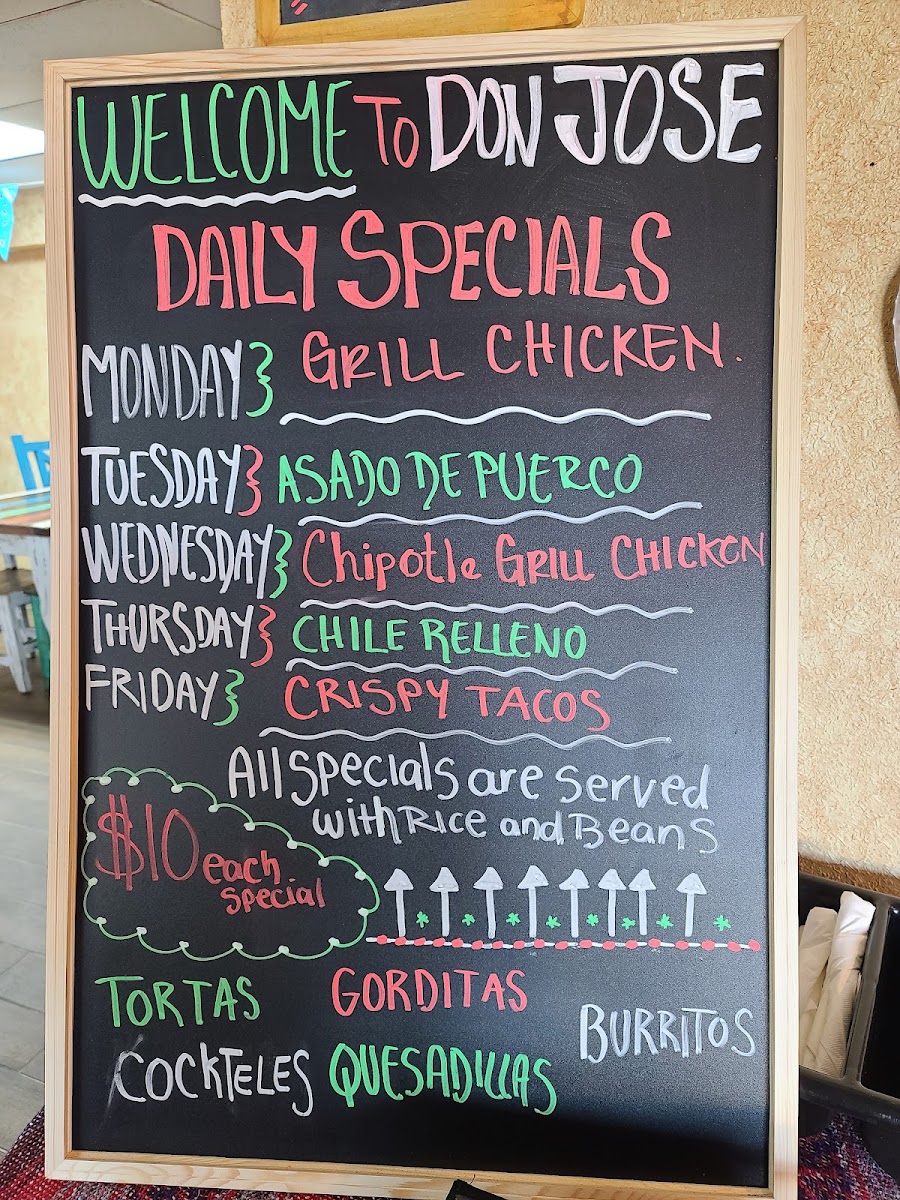 WELCOME TO DON JOSE
DAILY SPECIALS
MONDAY} GRILL CHICKEN.
TUESDAY} ASADO DE PUERCO
WEDNESDAY} Chipotle GRILL CHICKEN
THURSDAY} CHILE RELLENO
FRIDAY} CRISPY TACOS
All Specials are served
with Rice and Beans
$10 each
special
TORTAS GORDITAS
BURRITOS
COCKTELES QUESADILLAS